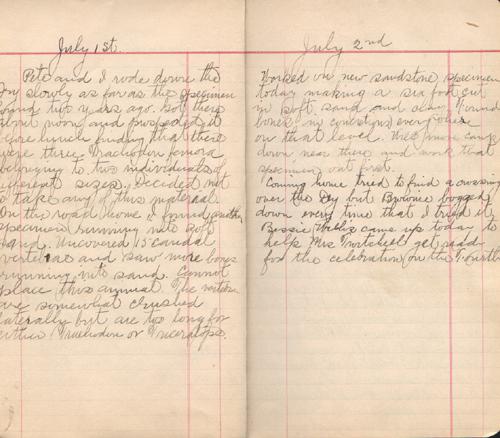 July 1st
Pete and I rode down the
Dry slowly as far as the specimen
found two years ago. Got there
about noon and prospected it
before lunch finding that there
were three Trachodon femora
belonging to two individuals of
different sizes, decided not
to take any of this material
On the road home I found another
specimen running into soft
sand. Uncovered 15 caudal
vertebrae and saw more bones
running into sand. Cannot
place this animal. The vertebrae
are somewhat crushed
laterally but are too long for
either Trachodon or Triceratops.
July 2nd
Worked on new sandstone specimen
today making a six foot cut
in soft sand and clay. Found
bones in everywhere
on that level. Will move camp
down near there and work that
specimen out first.
Coming home tried to find a crossing
over the Dry but Brownie bogged
down every time that I tried it
Bessie came up today to
help Mrs get ready
for the celebration on the Fourth